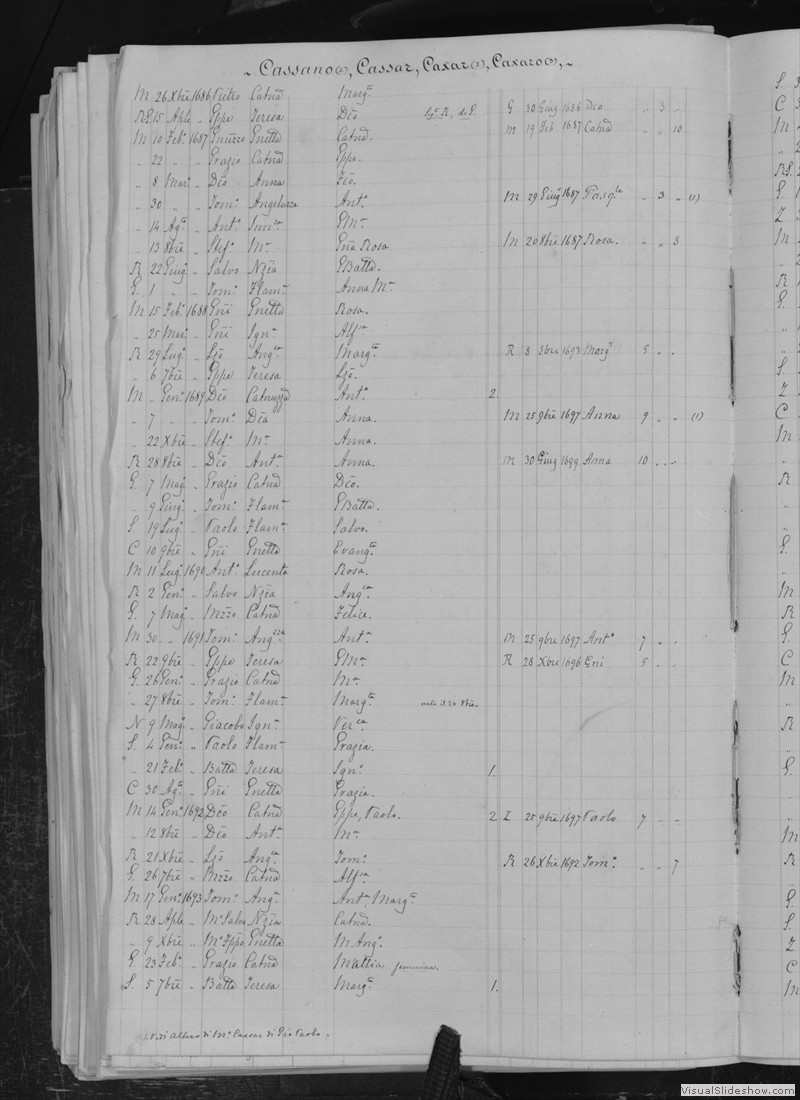 ~ Cassano(e), Cassar, Caxar(e), Caxaro(e), ~
M 26 Xbre 1686 Pietro Catnd Margta
R.G. 15 Aple „ Gppe Teresa Dco G 30 Giug 1686 Dco „ 3 „
M 10 Feb. 1687 Gnuzzo Gnetta Catnd. M 19 Feb 1687 Catnd „ „ 10
„ 22 „ „ Grazio Catnd Gppa.
„ 8 Mar. „ Dco Anna
„ 30 „ „ Tom. Angeluzza Ant. M 29 Giug 1687 Pasqle „ 3 „ (1)
„ 14 Agta „ Ant. Gma
„ 13 8bre „ Stef. Ma Gna Rosa M 20 8bre 1687 Rosa. „ „ 8
R 22 Giug. „ Salvo Nzia GBatta.
G. 1 „ „ Tom. Flama Anna Ma
M 15 Feb. 1688 Gni Gnetta Rosa.
„ 25 Mar. „ Gni Igna Alfia
R 29 Lug. „ Ljo Angca Margta R 8 8bre 1693 Margta 5 „ „
„ 6 7bre „ Gppe Teresa Ljo.
M „ Gen. 1689 Dco Catnuzza Ant. 2.
„ 7 „ „ Tom. Dca Anna. M 25 9bre 1697 Anna 9 „ „ (1)
„ 22 Xbre „ Stef. Ma Anna.
R 28 8bre „ Dco Anta Anna. M 30 Giug 1699 Anna 10 „ „
G. 7 Mag. „ Grazio Catnd Dco.
„ 9 Giug. „ Tom. Flama GBatta.
S. 19 Lug. „ Paolo Flama Salvo.
C 10 9bre „ Gni Gnetta Evangta
M 11 Lug. 1690 Ant. Lucenta Rosa.
R 2 Gen. „ Salvo Nzia Angca
G. 7 Mag. „ Mzzo Catnd Felice.
M 30 „ 1691 Tom. Angzza Anta M 25 9bre 1697 Anta 7 „ „
R 22 9bre „ Gppe Teresa GMa R 28 Xbre 1696 Gni 5 „ „
G. 26 Gen. „ Grazio Catnd Ma
„ 27 8bre „ Tom. Flama Margta nata il 24 8bre.
N 9 Mag. „ Giacobo Igna Verca
S. 4 Gen. „ Paolo Flama Grazia.
„ 21 Feb. „ Batta Teresa Igno 1.
C 30 Agta „ Gni Gnetta Grazia.
M 14 Gen. 1692 Dco Catnd Gppe, Paolo. 2 Z 25 9bre 1697 Paolo 7 „ „
„ 12 8bre „ Dco Anta Ma
R 21 Xbre „ Ljo Angca Tom. R 26 Xbre 1692 Tom. „ „ 7
G. 26 7bre „ Mzzo Catnd Alfia
M 17 Gen. 1693 Tom. Anga Anta, Margta
R 28 Aple „ Ma Salvo Nzia Catnd.
„ 9 Xbre „ Gnetta M Anga
G. 23 Feb. „ Grazio Catnd Mattia femmina.
S. 5 7bre „ Batta Teresa Margta 1.
1. Vedi albero di Ma Cassar di Gio Paolo.
VisualSlideshow.com